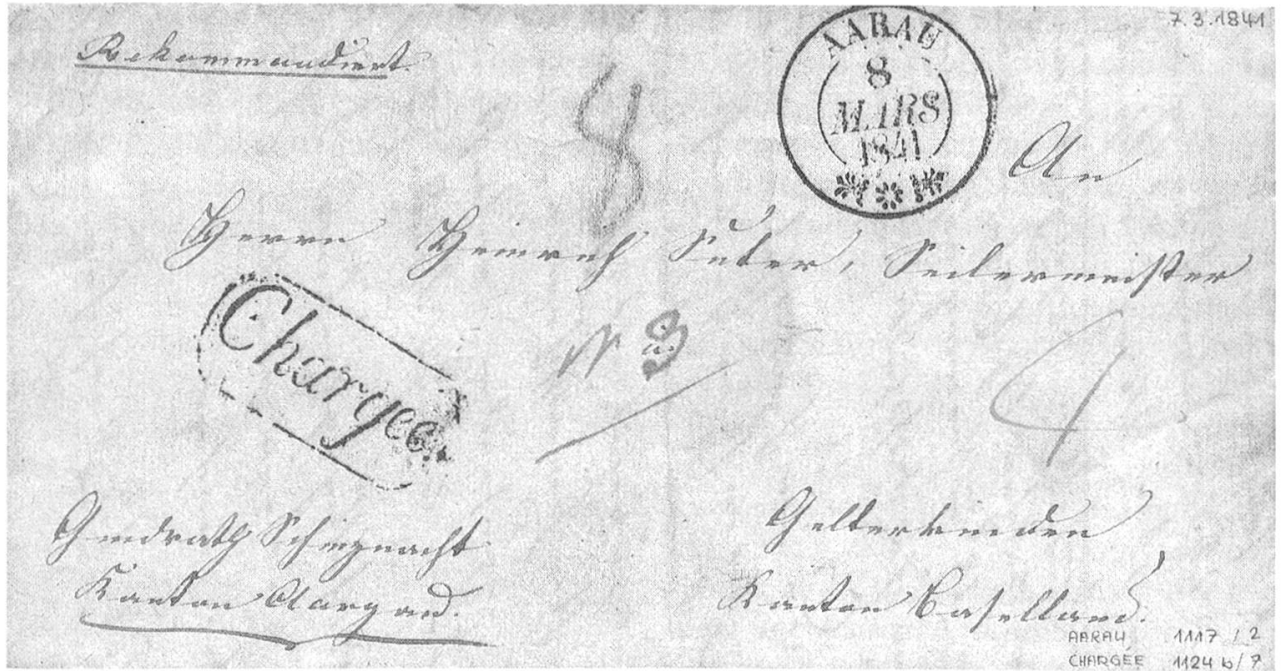 7.3.1841
Rekommandiert.
AARAU
8
MARS
1841
8
An
Herrn Heinrich Suter, Seilermeister
Chargée
N 3
Gmdrath Schinznacht
Kanton Aargau.
Gelterkinden
Kanton Baselland.
AARAU 1117 / 2
CHARGEE 1124 b / 7